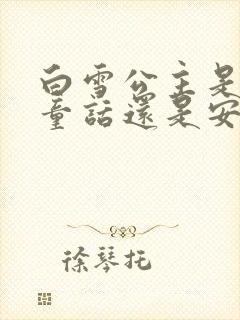 白雪公主是
童話還是安
徐琴托